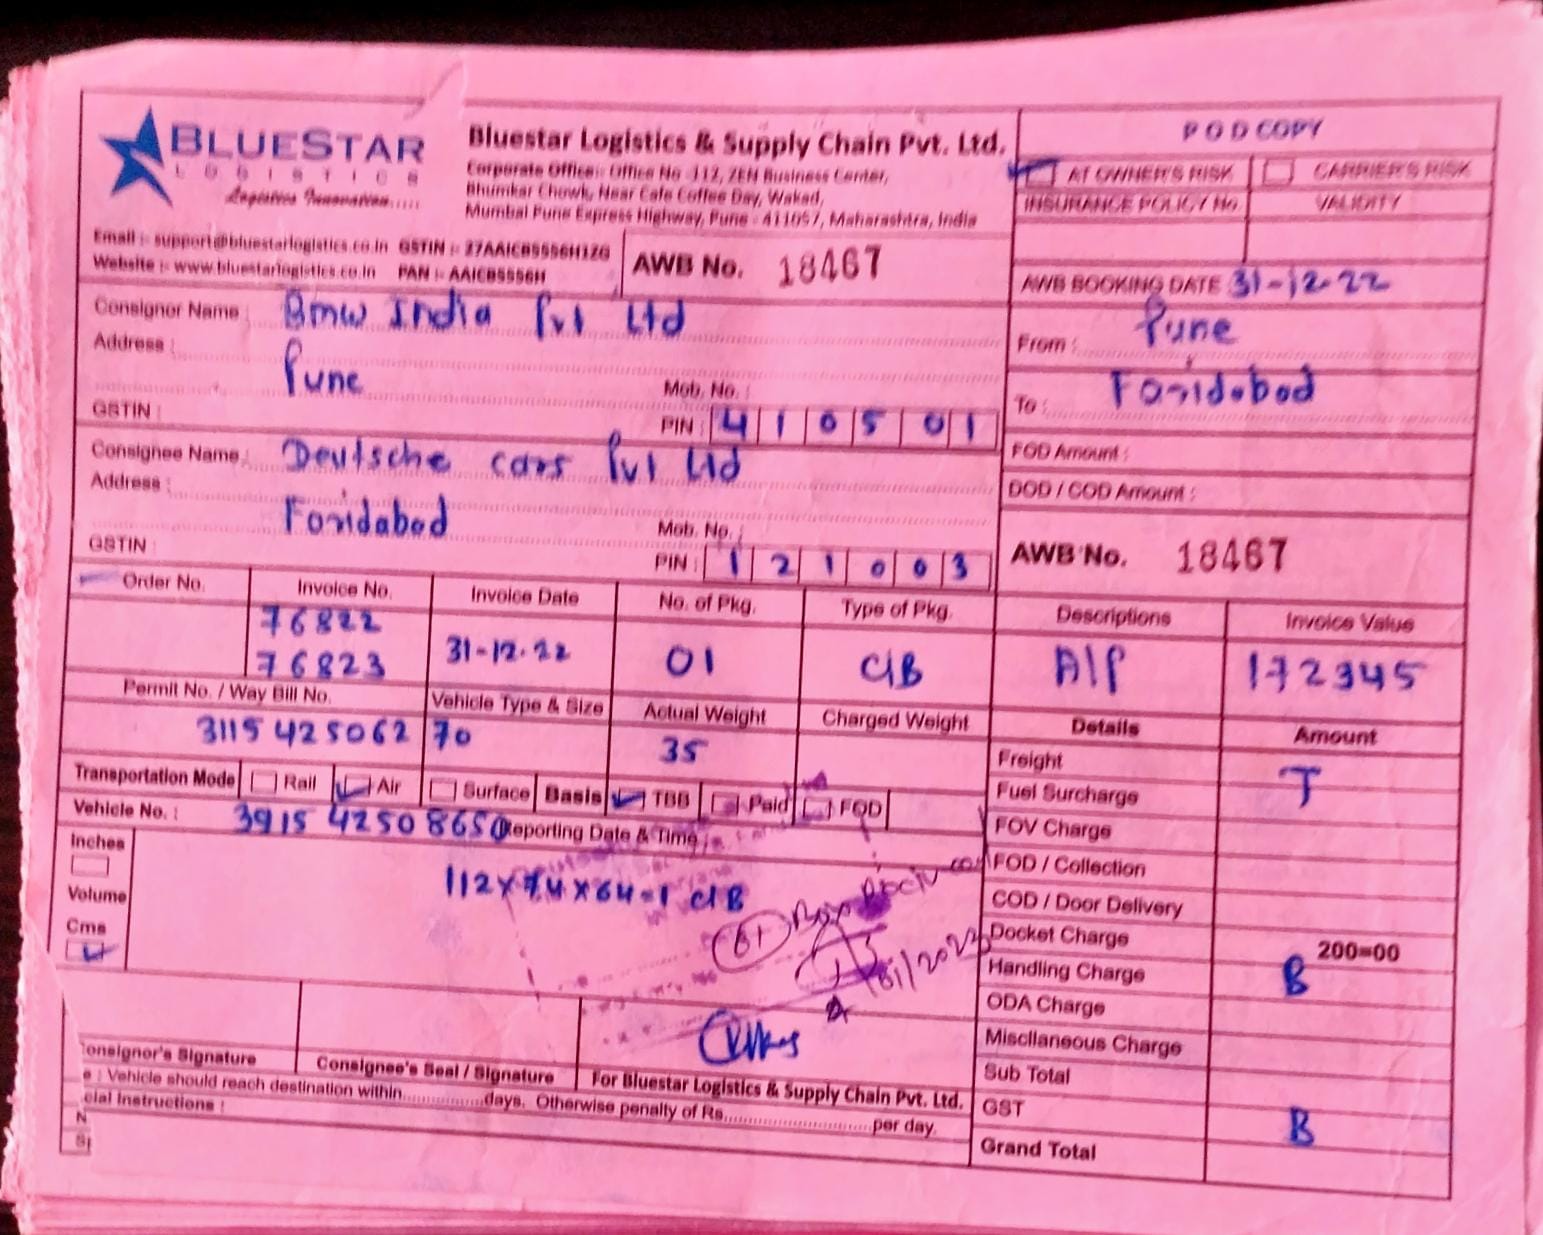 BLUESTAR
LOGISTICS
Logistics Innovation.....
Bluestar Logistics & Supply Chain Pvt. Ltd.
Corporate Office : Office No -112, ZEN Business Center,
Bhumkar Chowk, Near Cafe Coffee Day, Wakad,
Mumbai Pune Express Highway, Pune - 411057, Maharashtra, India
Email :- support@bluestarlogistics.co.in GSTIN :- 27AAICB5556H1ZG
Website :- www.bluestarlogistics.co.in PAN :- AAICB5556H
AWB No. 18467
P O D COPY
AT OWNER'S RISK CARRIER'S RISK
INSURANCE POLICY No. VALIDITY
AWB BOOKING DATE 31-12-22
From : Pune
To : Faridabad
FOD Amount :
DOD / COD Amount :
AWB No. 18467
Consignor Name : Bmw India Pvt Ltd
Address :
Pune Mob. No. :
GSTIN : PIN : 410501
Consignee Name : Deutsche cars Pvt Ltd
Address :
Faridabad Mob. No. :
GSTIN : PIN : 121003
Order No. Invoice No. Invoice Date No. of Pkg. Type of Pkg. Descriptions Invoice Value
76822
76823 31-12-22 01 C/B A/P 172345
Permit No. / Way Bill No. Vehicle Type & Size Actual Weight Charged Weight Details Amount
3115 425062 70 35
Transportation Mode Rail Air Surface Basis TBB Paid FOD
Vehicle No. : 3915 42508650 Reporting Date & Time :
Inches
Volume
Cms
112x74x64=1 C/B
Freight
Fuel Surcharge T
FOV Charge
FOD / Collection
COD / Door Delivery
Docket Charge 200=00
Handling Charge B
ODA Charge
Miscllaneous Charge
Sub Total
GST B
Grand Total
01 Box
onsignor's Signature Consignee's Seal / Signature For Bluestar Logistics & Supply Chain Pvt. Ltd.
e : Vehicle should reach destination within...............days. Otherwise penalty of Rs...........................per day.
cial Instructions :